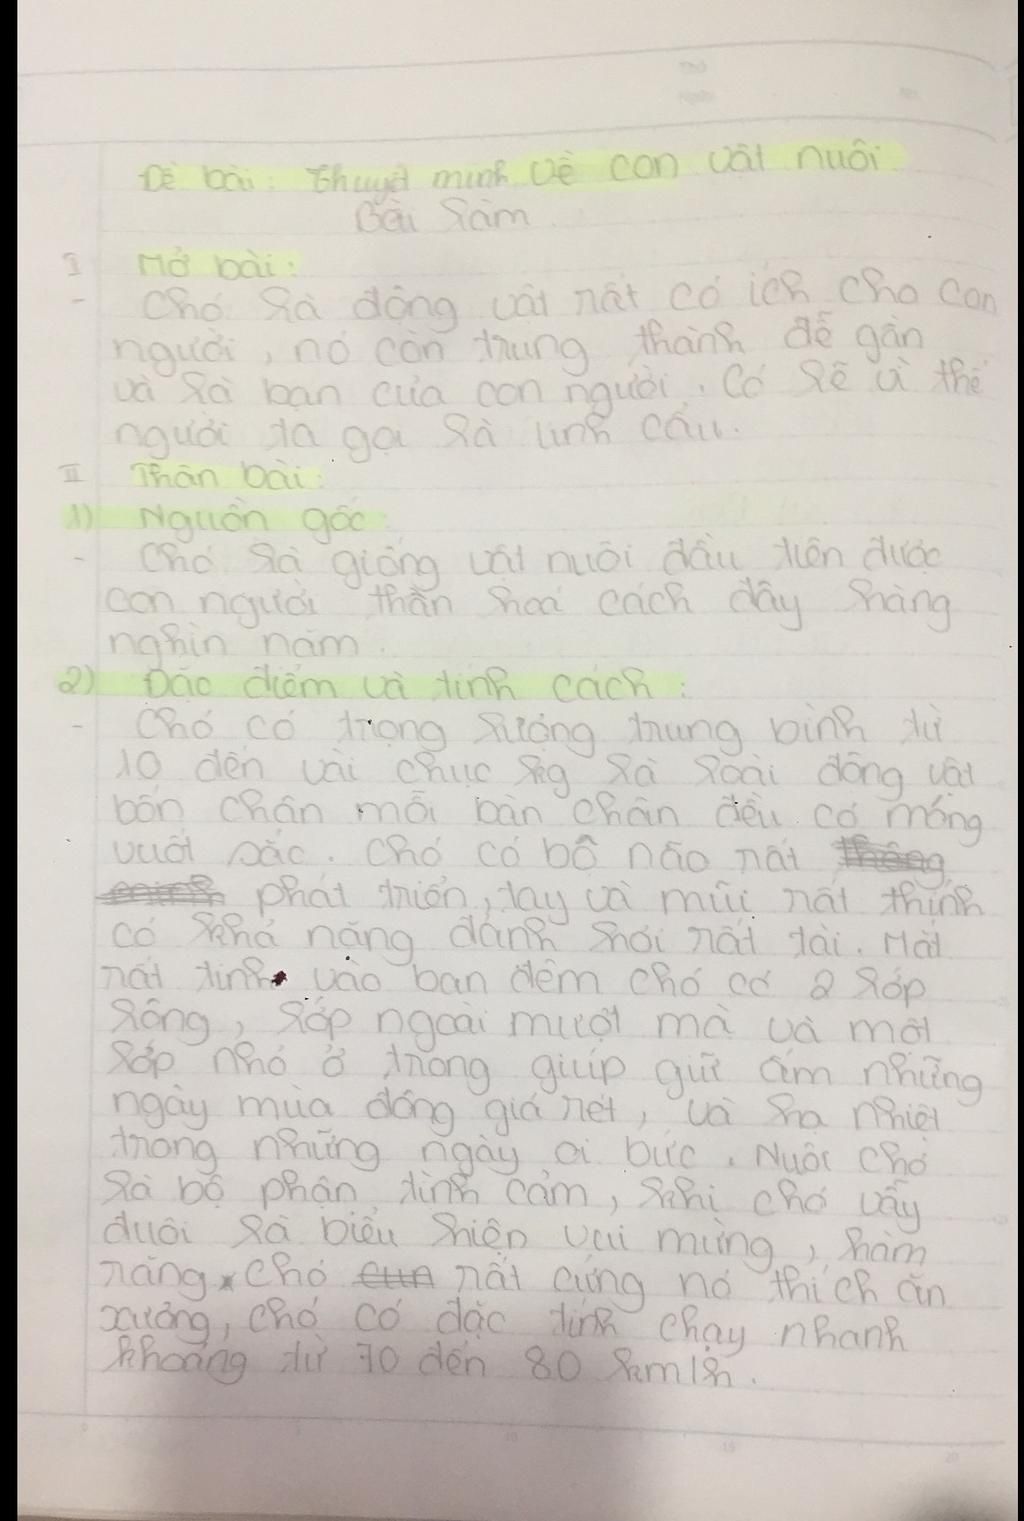 Đề bài: thuyết minh về con vật nuôi
Bài làm
I Mở bài:
- Chó là động vật rất có ích cho con
người, nó còn trung thành dễ gần
và là bạn của con người. Có lẽ vì thế
người ta gọi là linh cẩu.
II Thân bài:
1) Nguồn gốc:
- Chó là giống vật nuôi đầu tiên được
con người thần hoá cách đây hàng
nghìn năm.
2) Đặc điểm và tính cách:
- Chó có trọng lượng trung bình từ
10 đến vài chục kg là loài động vật
bốn chân mỗi bàn chân đều có móng
vuốt sắc. Chó có bộ não rất
phát triển, tay và mũi rất thính
có khả năng đánh hơi rất tài. Mắt
rất tinh vào ban đêm chó có 2 lớp
lông, lớp ngoài mượt mà và một
lớp nhỏ ở trong giúp giữ ấm những
ngày mùa đông giá rét, và hạ nhiệt
trong những ngày oi bức. Nuôi chó
là bộ phận tình cảm, khi chó vẫy
đuôi là biểu hiện vui mừng, hàm
răng chó rất cứng nó thích ăn
xương, chó có đặc tính chạy nhanh
khoảng từ 70 đến 80 km/h.